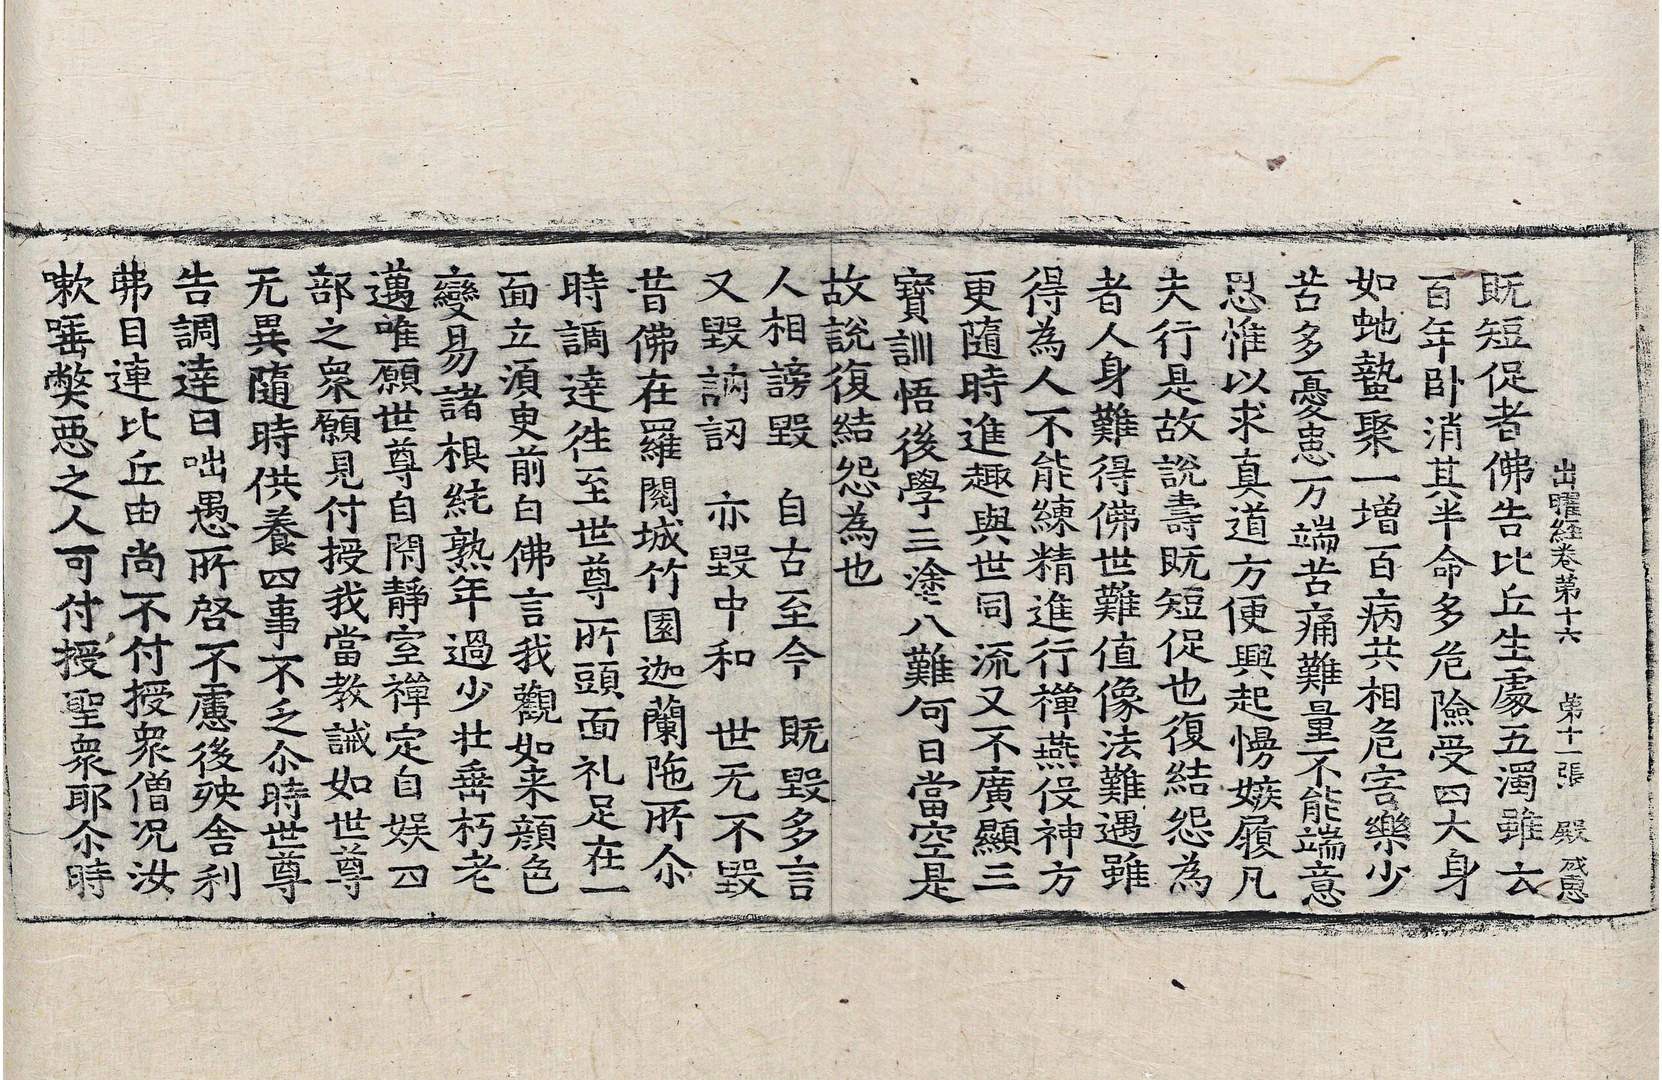 出曜經卷第十六 第十一張 殿 戒恵
既短促者佛告比丘生處五濁雖云
百年卧消其半命多危險受四大身
如虵蟄聚一增百病共相危害樂少
苦多憂患万端苦痛難量不能端意
思惟以求真道方便興起慢嫉履凡
夫行是故說壽既短促也復結怨為
者人身難得佛世難值像法難遇雖
得為人不能練精進行禪燕伇神方
更隨時進趣與世同流又不廣顯三
寶訓悟後學三塗八難何日當空是
故說復結怨為也
人相謗毀 自古至今 既毀多言
又毀訥訒 亦毀中和 世无不毀
昔佛在羅閱城竹園迦蘭陁所尒
時調達往至世尊所頭面礼足在一
面立須臾前白佛言我觀如来顔色
變易諸根純熟年過少壮垂朽老
邁唯願世尊自閑靜室禪定自娛四
部之衆願見付授我當教誡如世尊
无異隨時供養四事不乏尒時世尊
告調達曰咄愚所啓不慮後殃舍利
弗目連比丘由尚不付授衆僧况汝
嗽唾弊惡之人可付授聖衆耶尒時